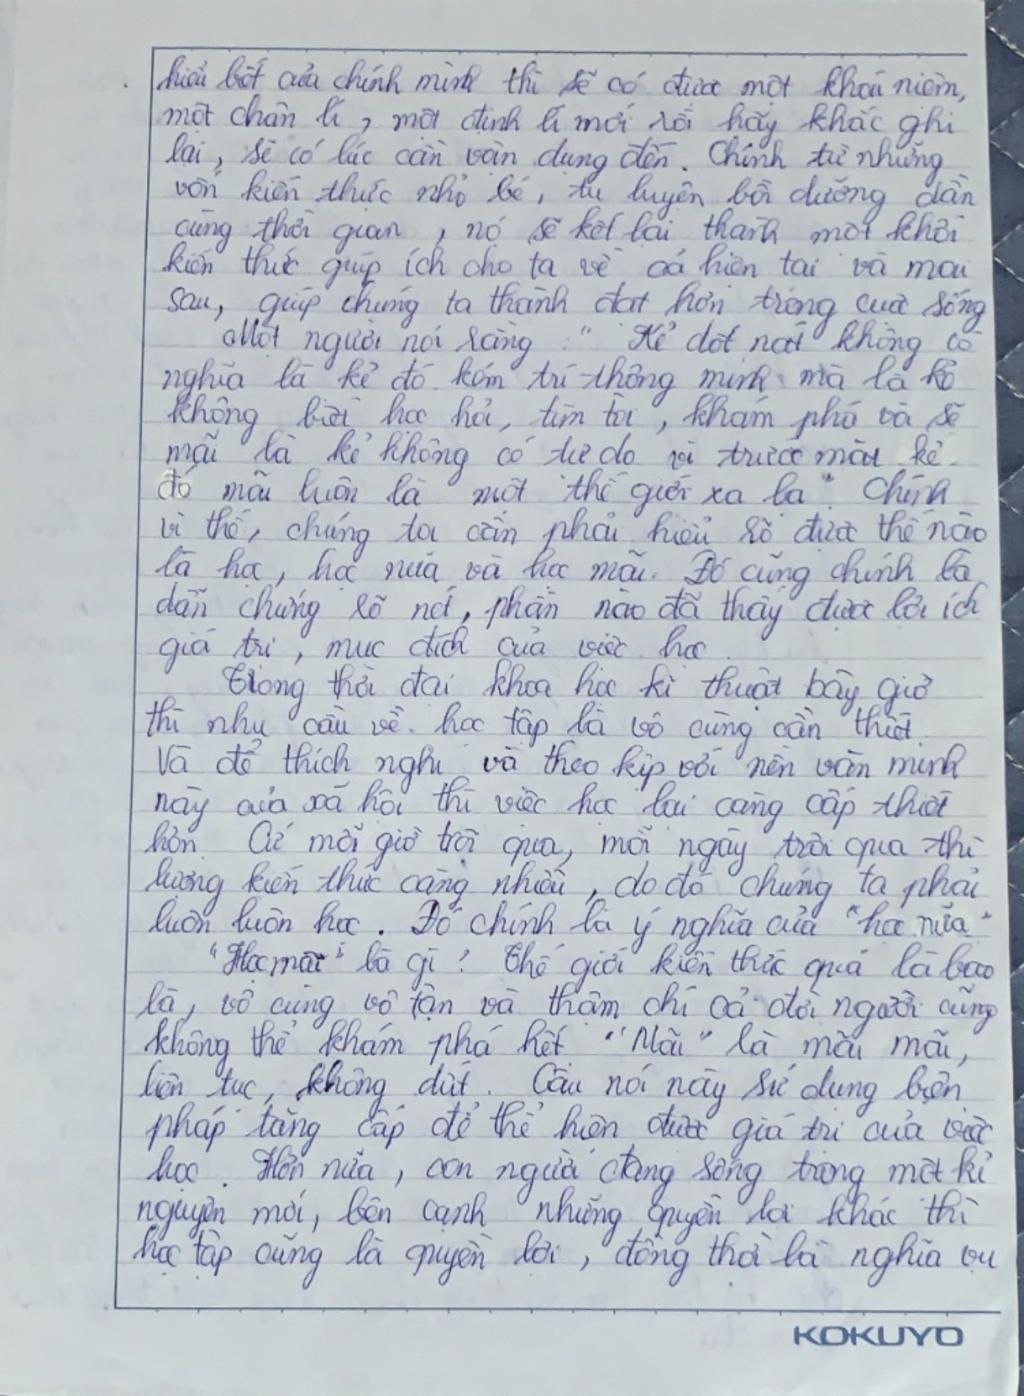 hiểu biết của chính mình thì sẽ có được một khái niệm,
một chân lí, một định lí mới rồi hãy khắc ghi
lại, sẽ có lúc cần vận dụng đến. Chính từ những
vốn kiến thức nhỏ bé, tu luyện bồi dưỡng dần
cùng thời gian, nó sẽ kết lại thành một khối
kiến thức giúp ích cho ta về cả hiện tại và mai
sau, giúp chúng ta thành đạt hơn trong cuộc sống
Một người nói rằng: "Kẻ dốt nát không có
nghĩa là kẻ đó kém trí thông minh mà là kẻ
không biết học hỏi, tìm tòi, khám phá và sẽ
mãi là kẻ không có tự do vì trước mặt kẻ
đó mãi luôn là một thế giới xa lạ" Chính
vì thế, chúng ta cần phải hiểu rõ được thế nào
là học, học nữa và học mãi. Đó cũng chính là
dẫn chứng rõ nét, phần nào đã thấy được lợi ích
giá trị, mục đích của việc học
Trong thời đại khoa học kĩ thuật bây giờ
thì nhu cầu về học tập là vô cùng cần thiết.
Và để thích nghi và theo kịp với nền văn minh
này của xã hội thì việc học lại càng cấp thiết
hơn Cứ mỗi giờ trôi qua, mỗi ngày trôi qua thì
lượng kiến thức càng nhiều, do đó chúng ta phải
luôn luôn học. Đó chính là ý nghĩa của "học nữa"
"Học mãi" là gì? Thế giới kiến thức quá là bao
la, vô cùng vô tận và thậm chí cả đời người cũng
không thể khám phá hết "Mãi" là mãi mãi,
liên tục, không dứt. Câu nói này sử dụng biện
pháp tăng cấp để thể hiện được giá trị của việc
học. Hơn nữa, con người đang sống trong một kỉ
nguyên mới, bên cạnh những quyền lợi khác thì
học tập cũng là quyền lợi, đồng thời là nghĩa vụ
KOKUYO